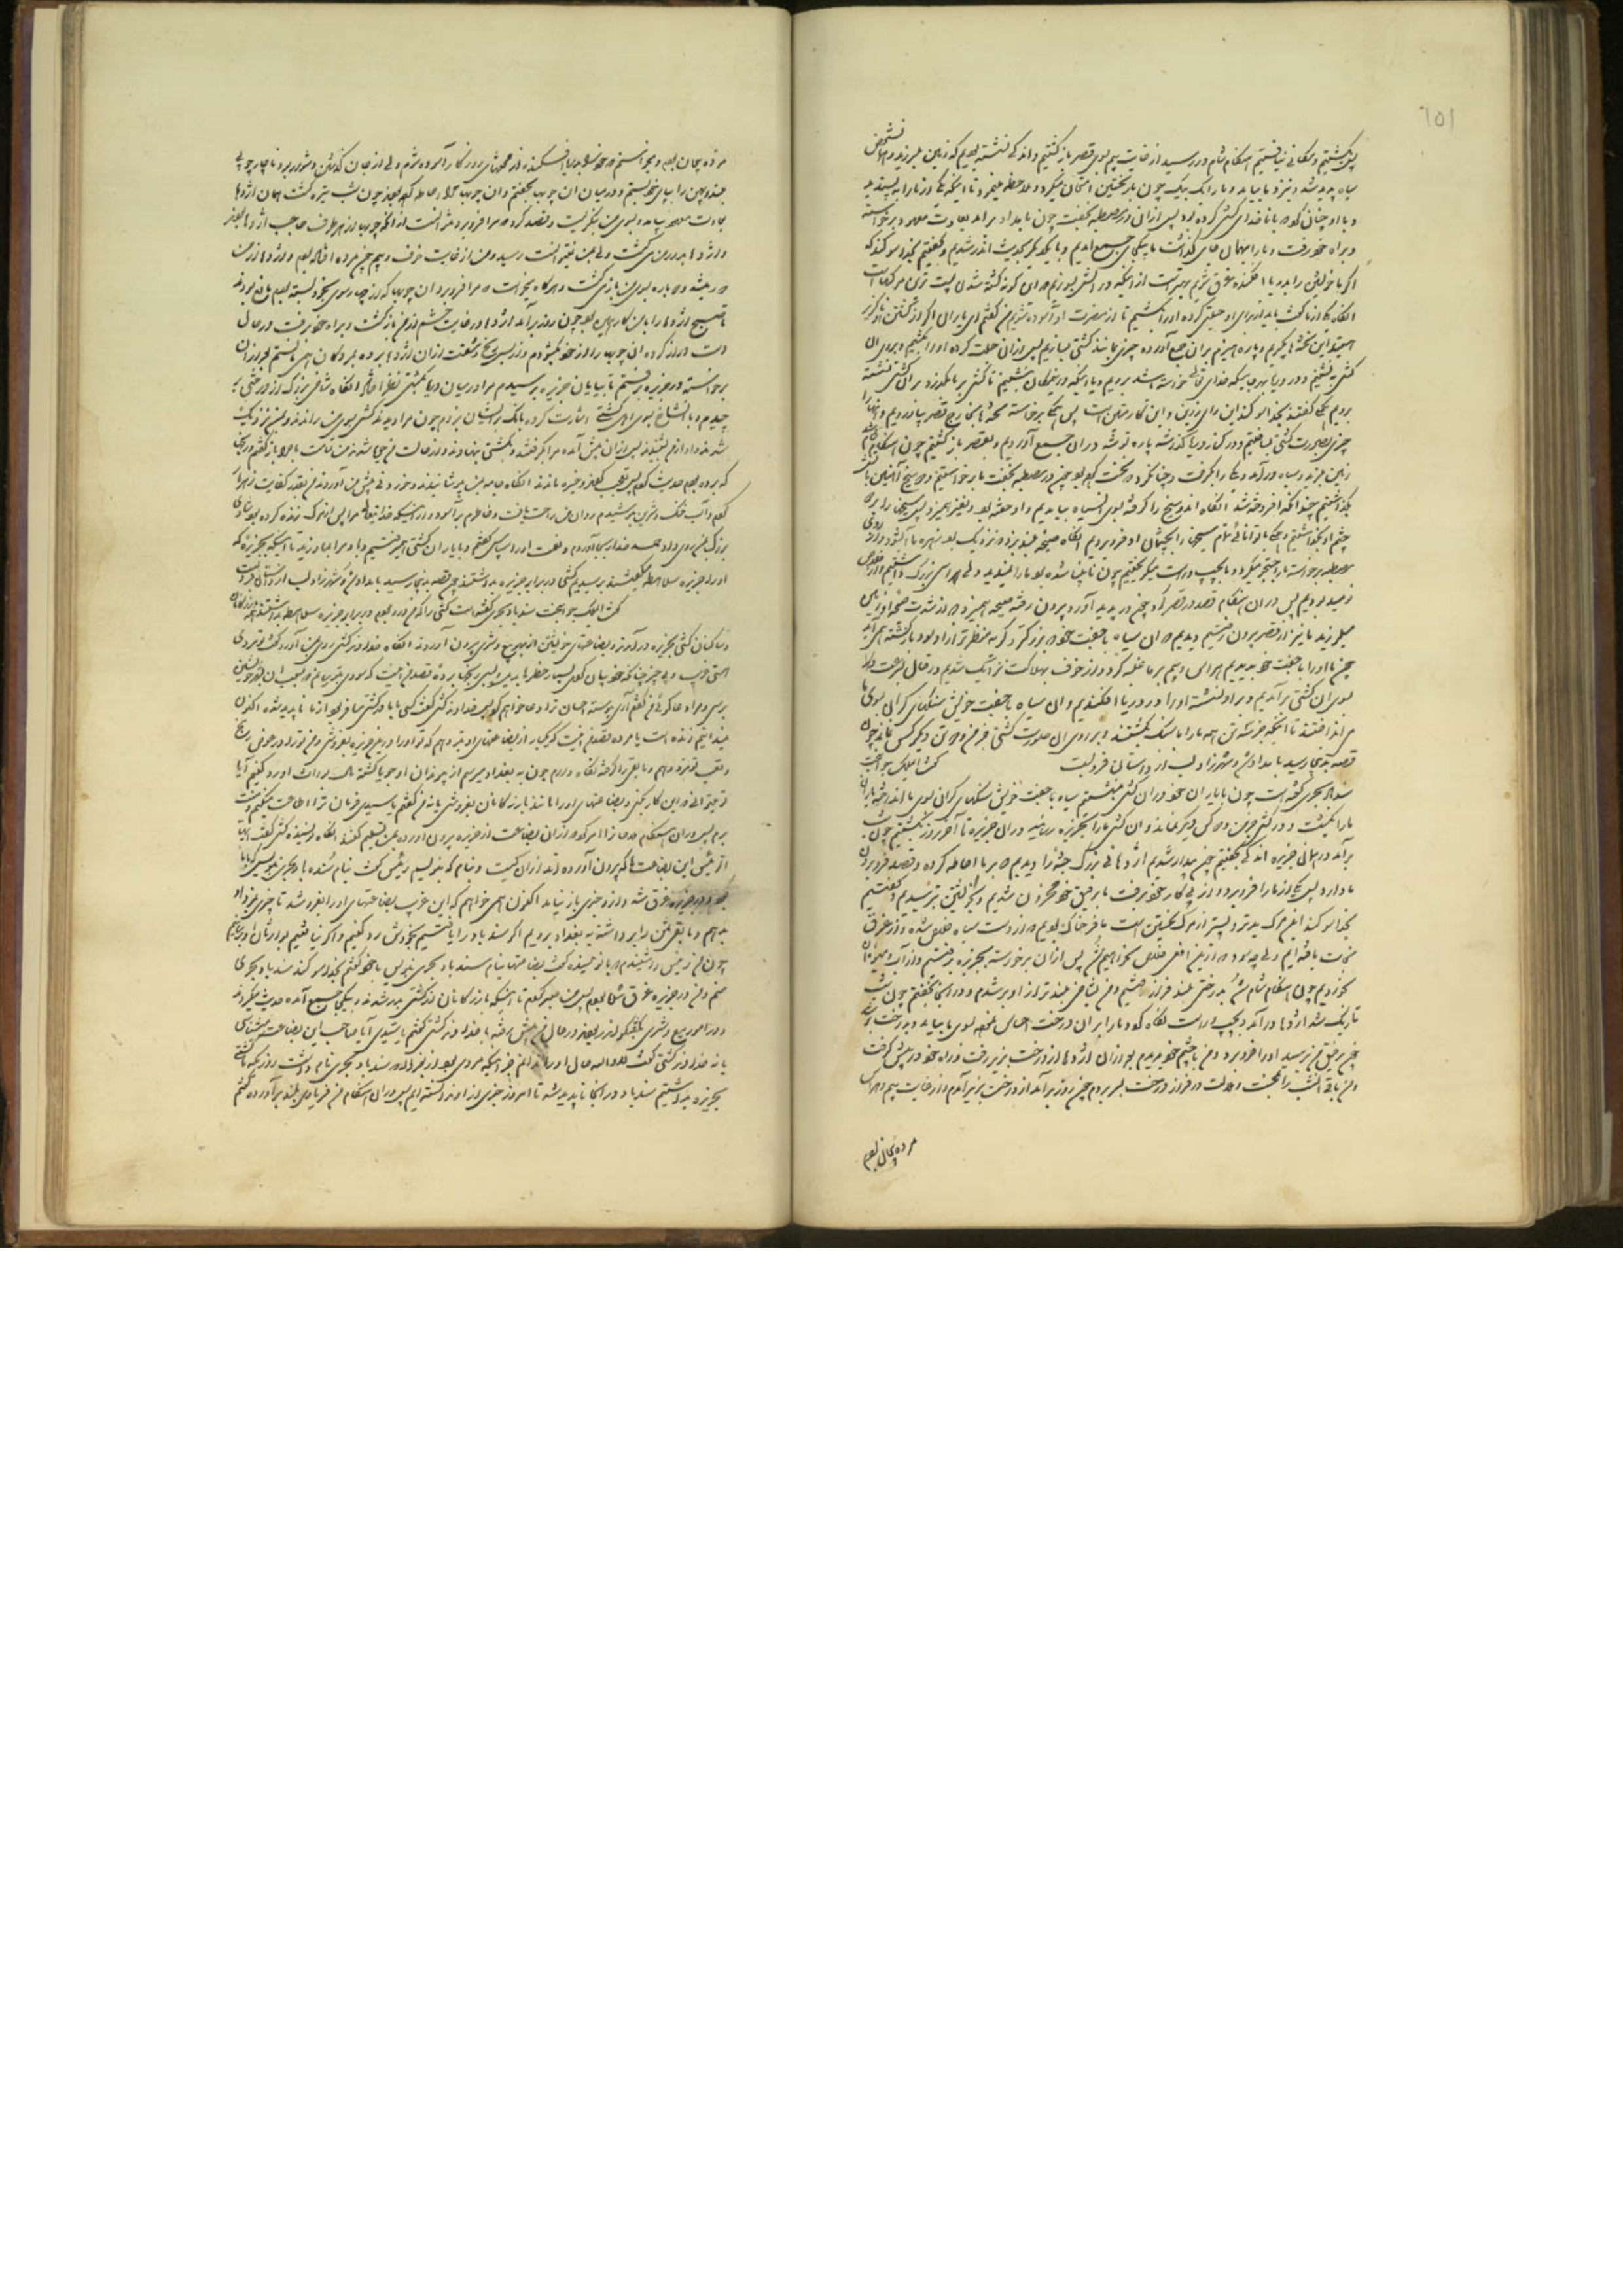 ۱۵۱
بگشتیم و مکانی نیافتیم هنگام شام در رسید از غایت بیم بسوی قصر بازگشتیم و اندکی نشسته بودیم که زمین بلرزید و شخص
سیاه پدید شد و نزد ما بیامد و ما را یک بیک چون بار نخستین امتحان میکرد و ملاحظه مینمود تا اینکه یکی از ما را به پسندید
و با او چنان کرد که با ناخدای کشتی کرده بود پس از آن در مصطبه بخفت چون بامداد برآمد بعادت معهود برخواسته
و براه خود رفت و ما را بهمان جای گذاشت ما یکجای جمع آمدیم و با یکدیگر بحدیث اندر شدیم و گفتیم بخدا سوگند که
اگر ما خویشتن را بدریا افکنده غرق شویم بهتر است از اینکه در آتش بسوزیم
آنگاه یکی از ما گفت باید از برای او حیلتی کرده او را بکشیم تا از مضرت او آسوده شویم من گفتم ای یاران اگر از کشتن او ناگزیر
هستید این تخته‌ها بگیریم و پاره هیزم بر آن جمع آورده چیزی مانند کشتی بسازیم پس از آن حیلت کرده او را بکشیم و بر آن
کشتی بنشینیم و در دریا بهر جا که خدای تعالی خواسته باشد برویم و یا اینکه در مکان بنشینیم تا کشتی بر ما بگذرد بر آن کشتی نشسته
برویم همگی گفتند بخدا سوگند این رای رزین و این کار متین است پس همگی برخاسته تخته‌ها بخارج قصر بیاوردیم و
چیزی بصورت کشتی بساختیم و در کنار دریا گذاشته پاره توشه در آن جمع آوردیم و بقصر بازگشتیم چون هنگام شام شد
زمین بلرزید و سیاه در آمد و یکی را بگرفت و چنانکه در نخست کرده بود در مصطبه بخفت ما برخواستیم و دو سیخ آهنین بآتش
بگذاشتیم چندانکه افروخته شد آنگاه آن دو سیخ را گرفته بسوی آن سیاه بیامدیم و او خفته بود و نفیر همیزد پس سیخها را بر دو
چشم او بگذاشتیم و همگی با توانائی تمام سیخها را بچشمان او فرو بردیم آنگاه صیحه بلند بزد که نزدیک بود زهره ما آب شود و از روی
مصطبه برخاست ما را جستجو میکرد و ما بچپ و راست میگریختیم چون نابینا شده بود ما را نمیدید ولی هراسی بزرگ داشتیم و از خلاص
نومید بودیم پس در آن هنگام قصد در قصر کرد و چون در پدید آورد بیرون رفته صیحه همیزد که از شدت صیحه او زمین
میلرزید ما نیز از قصر بیرون رفتیم دیدیم که آن سیاه با جفت خود که بزرگتر و کریه منظرتر از او بود بازگشته همی‌آید
چون ما او را با جفت خود بدیدیم هراس و بیم بر ما غلبه کرد و از خوف بهلاکت نزدیک شدیم در حال بسرعت
بسوی آن کشتی بر آمدیم و بر او نشسته او را در دریا افکندیم و آن سیاه با جفت خویش سنگهای گران بسوی ما
می‌انداختند تا اینکه همه ما را با سنگ بکشتند و بر روی آن صورت کشتی جز من و دو تن دیگر کس نماند چون
قصه بدینجا رسید بامداد شد و شهرزاد لب از داستان فروبست گفت ای ملک جوانبخت
سندباد بحری گفته است چون با یاران خود در آن کشتی بنشستیم سیاه با جفت خویش سنگهای گران بسوی ما انداخته یاران
ما را بکشت و در کشتی جز من و دو کس دیگر نماند و آن کشتی ما را بجزیره رسانید در آن جزیره تا آخر روز بگشتیم چون شب
برآمد در همان جزیره اندکی بخفتیم چون بیدار شدیم اژدهائی بزرگ جثه را دیدیم که بر ما احاطه کرده و قصد فروبردن
ما دارد پس یکی از ما را فرو برد و از پی کار خود برفت ما بر رفیق خود محزون شدیم و بر خویشتن بترسیدیم و گفتیم
بخدا سوگند این مرگ بدتر و پستر از مرگ نخستین است ما فرحناک بودیم که از دست سیاه خلاص شده و از غرق
نجات یافته‌ایم ولی چه سود که از این افعی خلاص نخواهیم شد پس از آن برخواسته بجزیره برفتیم و از آب و میوه آن
بخوردیم چون هنگام شام شد بدرختی بلند فراز رفتیم و من بشاخی بلندتر از او بر شدم و در آنجا بخفتم چون شب
تاریک شد اژدها در آمد و بچپ و راست نگاه کرد و ما را بر آن درخت احساس نموده بسوی ما بیامد و بدرخت
چون برفیق من برسید او را فرو برد و من با چشم خود بدیدم پس از آن اژدها از درخت بزیر رفت و راه خود در پیش گرفت
و من باقی آن شب را بمحنت و ملالت در فراز درخت بسر بردم چون روز برآمد از درخت بزیر آمدم و از غایت بیم و هراس
مرده بیجان بودم
مرده بیجان بودم و میخواستم که خود را بدریا افکنده از محنتهای روزگار آسوده شوم ولی از جان گذشتن دشوار بود ناچار چوبی
چند پهن را بپای خود ببستم و در میان آن چوبها بخفتم و آن چوبها مرا احاطه کرده بودند چون شب تیره گشت همان اژدها
بعادت معهود بیامد و بسوی من بنگریست و قصد کرد که مرا فرو برد نتوانست از آنکه چوبها از هر طرف حاجب اژدها بودند
و اژدها بر دور من میگشت ولی بمن نمیتوانست رسید و من از غایت خوف و بیم چون مرده افتاده بودم و اژدها از من
دور میشد و دوباره بسوی من باز میگشت و هرگاه میخواست که مرا فرو برد آن چوبها که از چهار سوی بخود بسته بودم مانع بودند
تا صبح اژدها را با من کار همین بود چون روز برآمد اژدها در غایت خشم از من بازگشت و براه خود برفت در حال
دست دراز کرده آن چوبها را از خود بگشودم و از بس رنج و مشقت از آن اژدها برده بمردگان همی‌مانستم پس از آن
برخواسته در جزیره برفتم تا بپایان جزیره برسیدم مرا در میان دریا بکشتی نظر افتاد آنگاه شاخی بزرگ از درختی
چیدم و با آن شاخ بسوی اهل کشتی اشارت کرده بانگ بر ایشان بزدم چون مرا دیدند کشتی بسوی من راندند و بمن نزدیک
شدند و آواز من بشنیدند پس از آن پیش آمده مرا بگرفتند و بکشتی نهادند و از حالت من جویا شدند من تمامت ماجرا باز گفتم و رنجی
که برده بودم حدیث کردم پس تعجب کردند و خیره ماندند آنگاه جامه بمن بپوشانیدند و خوردنی پیش من آوردند من بقدر کفایت از بهرا
کردم و آب خنک و شیرین بنوشیدم روان من راحت یافت و خاطرم بر آسود و از اینکه خدایتعالی مرا پس از مرگ زنده کرده بود
بزرگ بمن روی داد حمد خدا بجا آوردم و نعمت او را سپاس گفتم و با یاران کشتی همی‌رفتیم و باد مراد میوزید تا اینکه بجزیره که
او را جزیره سلاهطه میگفتند برسیدیم کشتی در برابر جزیره بداشتند چون قصه بدینجا رسید بامداد شد و شهرزاد لب از داستان فروبست
گفت ای ملک جوانبخت سندباد بحری گفته است کشتی را که من در او بودم در برابر جزیره سلاهطه بداشتند بازرگانان
و ساکنان کشتی بجزیره در آمدند و بضاعتهای خویشتن از بهر بیع و شری بیرون آوردند آنگاه خداوند کشتی روی بمن آورد گفت تو مردی
هستی غریب و بی چیز چنانکه خود بیان کردی بسیار خطرها بدیده و بسی رنجها برده قصد من اینست که سودی بتو رسانم که بسبب آن بشهر خویشتن
برسی و مرا دعا گوئی من گفتم آری پیوسته احسان ترا دعا خواهم گفت خداوند کشتی گفت کسی با ما در کشتی مسافر بود از ما ناپدید شده اکنون
نمیدانیم زنده است یا مرده قصد من اینست که یکبار از بضاعتهای او بتو دهم که تو او را در این جزیره بفروشی و من ترا در عوض رنج
و تعب تو مزد دهم و مابقی را گرفته نگاه دارم چون به بغداد برسیم از پیوندان او جویا گشته مال او را باو رد کنیم آیا
تو میتوانی که این کار بکنی و بضاعتهای او را مانند بازرگانان بفروشی یا نه من گفتم یا سیدی فرمان ترا اطاعت میکنم و منت
برم پس در آن هنگام خداوند کشتی حمالان را امر کرد که از آن بضاعت از جزیره بیرون آورده بمن تسلیم کنند آنگاه نویسنده کشتی گفت ایها
الرئیس این بضاعتها که بیرون آورده‌اند از آن کیست و بنام که بنویسم رئیس گفت بنام سندباد بحری بنویس که با ما
بود و در جزیره غرق شد و از او خبری باز نیامد اکنون همی‌خواهم که این غریب بضاعتهای او را بفروشد تا چیزی بمزد او
بدهم و مابقی ثمن را برداشته به بغداد برویم اگر سندباد را یافتیم بخودش رد کنیم و اگر نیافتیم بوارثان او برسانیم
چون من از رئیس بشنیدم که با نویسنده گفت بضاعتها بنام سندباد بحری بنویس با خود گفتم بخدا سوگند سندباد بحری
منم و من در جزیره غرق شده بودم پس صبر کردم تا اینکه بازرگانان از کشتی بدر شدند و بیکجای جمع آمده حدیث میکردند
و در امور بیع و شری گفتگو اندر بودند در حال من پیش رفته با خداوند کشتی گفتم یا سیدی آیا صاحب این بضاعت میشناسی
یا نه خداوند کشتی گفت حال او را ندانم جز اینکه مردی بود از بغداد که سندباد بحری نام داشت روزیکه کشتی
بجزیره بداشتیم سندباد در آنجا ناپدید شد تا امروز خبری از او ندانسته‌ایم پس در آن هنگام من فریادی بلند برآورده گفتم